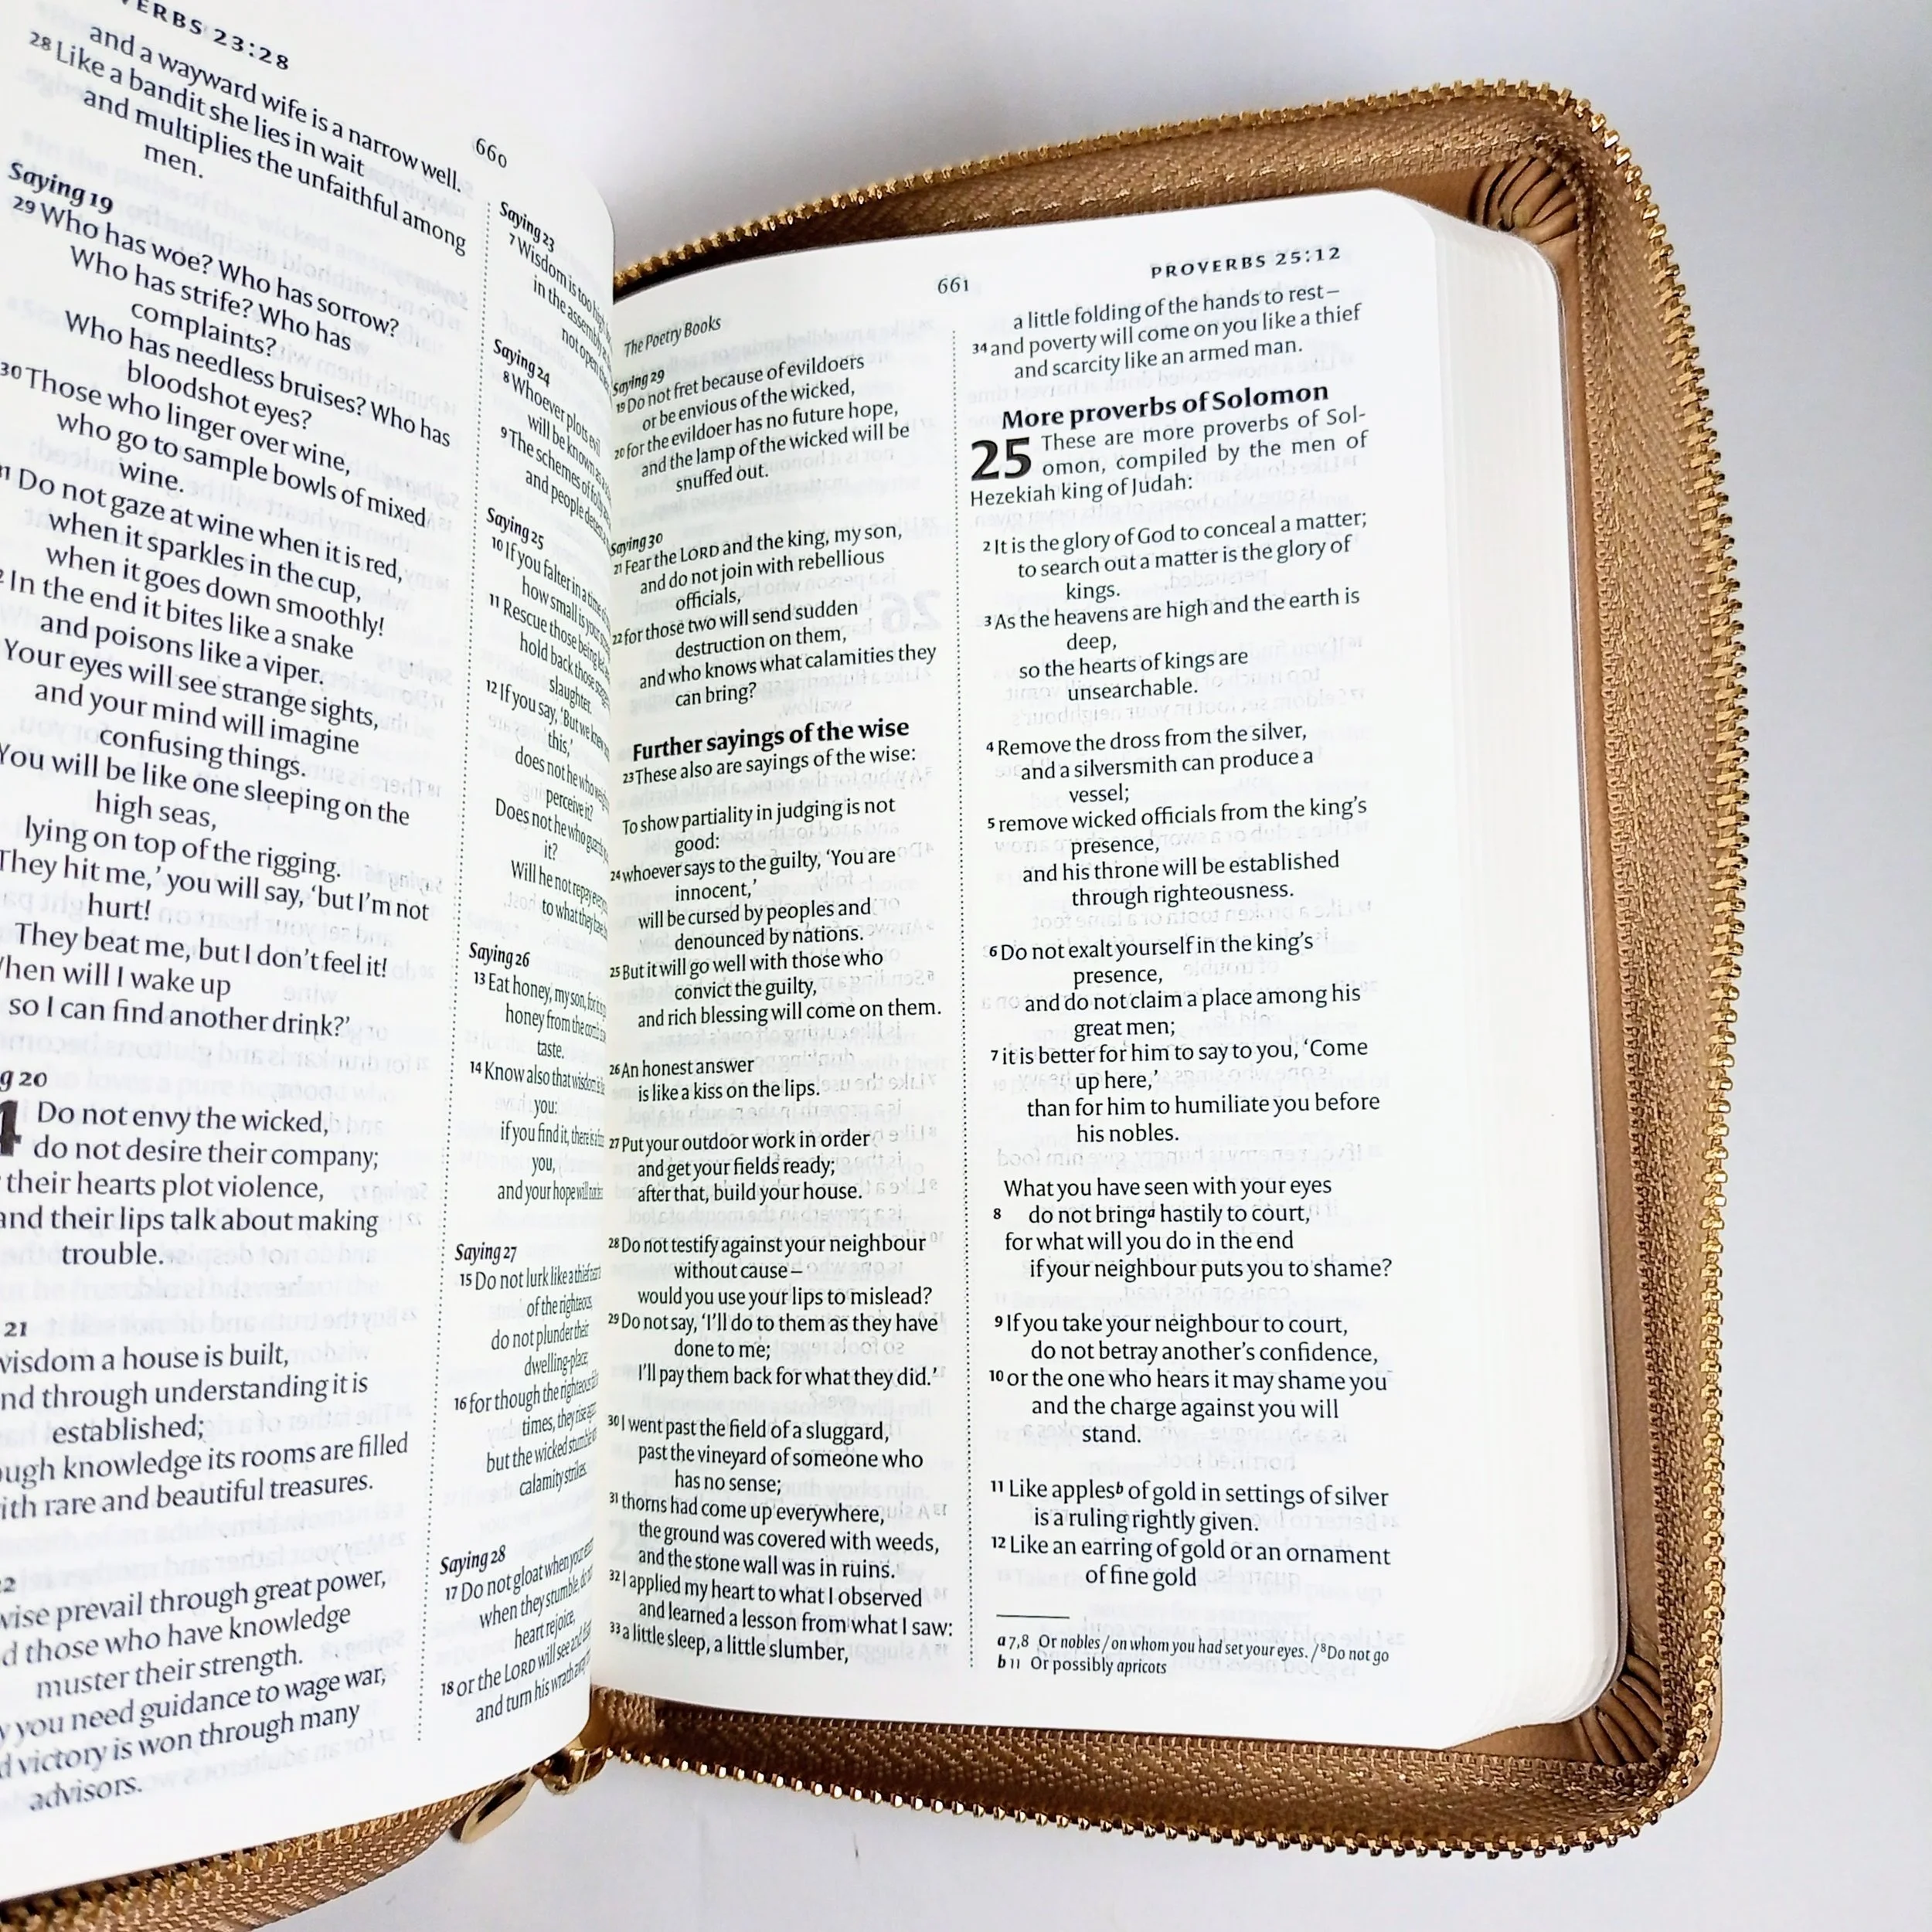 ERBS 23:28
660
and a wayward wife is a narrow well.
28 Like a bandit she lies in wait
and multiplies the unfaithful among
men.
Saying 19
29 Who has woe? Who has sorrow?
Who has strife? Who has
complaints?
Who has needless bruises? Who has
bloodshot eyes?
30 Those who linger over wine,
who go to sample bowls of mixed
wine.
Do not gaze at wine when it is red,
when it sparkles in the cup,
when it goes down smoothly!
In the end it bites like a snake
and poisons like a viper.
Your eyes will see strange sights,
and your mind will imagine
confusing things.
You will be like one sleeping on the
high seas,
lying on top of the rigging.
They hit me,' you will say, 'but I'm not
hurt!
They beat me, but I don't feel it!
When will I wake up
so I can find another drink?'
20
Do not envy the wicked,
do not desire their company;
their hearts plot violence,
and their lips talk about making
trouble.
21
wisdom a house is built,
and through understanding it is
established;
knowledge its rooms are filled
with rare and beautiful treasures.
wise prevail through great power,
those who have knowledge
muster their strength.
you need guidance to wage war,
victory is won through many
advisors.
Saying 23
7 Wisdom is too
in the
not open
Saying 24
8 Whoever plots evil
will be known
9 The schemes of
and people
Saying 25
10 If you falter in a
how small is
11 Rescue those being
hold back those
slaughter.
12 If you say, 'But we
this,'
does not he who
perceive it?
Does not he who
it?
Will he not repay
to what they
Saying 26
13 Eat honey, my son, for
honey from the comb
taste.
14 Know also that wisdom
you:
if you find it, there is
you,
and your hope will not
Saying 27
15 Do not lurk like a thief
of the righteous,
do not plunder their
dwelling-place;
16 for though the righteous
times, they rise
but the wicked stumble
calamity strikes.
Saying 28
17 Do not gloat when your
when they stumble, do
heart rejoice,
18 or the LORD will see and
and turn his wrath
The Poetry Books
661
PROVERBS 25:12
Saying 29
19 Do not fret because of evildoers
or be envious of the wicked,
20 for the evildoer has no future hope,
and the lamp of the wicked will be
snuffed out.
Saying 30
21 Fear the LORD and the king, my son,
and do not join with rebellious
officials,
22 for those two will send sudden
destruction on them,
and who knows what calamities they
can bring?
Further sayings of the wise
23 These also are sayings of the wise:
To show partiality in judging is not
good:
24 whoever says to the guilty, 'You are
innocent,'
will be cursed by peoples and
denounced by nations.
25 But it will go well with those who
convict the guilty,
and rich blessing will come on them.
26 An honest answer
is like a kiss on the lips.
27 Put your outdoor work in order
and get your fields ready;
after that, build your house.
28 Do not testify against your neighbour
without cause –
would you use your lips to mislead?
29 Do not say, 'I'll do to them as they have
done to me;
I'll pay them back for what they did.'
30 I went past the field of a sluggard,
past the vineyard of someone who
has no sense;
31 thorns had come up everywhere,
the ground was covered with weeds,
and the stone wall was in ruins.
32 I applied my heart to what I observed
and learned a lesson from what I saw:
33 a little sleep, a little slumber,
a little folding of the hands to rest –
34 and poverty will come on you like a thief
and scarcity like an armed man.
More proverbs of Solomon
25 These are more proverbs of Sol-
omon, compiled by the men of
Hezekiah king of Judah:
2 It is the glory of God to conceal a matter;
to search out a matter is the glory of
kings.
3 As the heavens are high and the earth is
deep,
so the hearts of kings are
unsearchable.
4 Remove the dross from the silver,
and a silversmith can produce a
vessel;
5 remove wicked officials from the king's
presence,
and his throne will be established
through righteousness.
6 Do not exalt yourself in the king's
presence,
and do not claim a place among his
great men;
7 it is better for him to say to you, 'Come
up here,'
than for him to humiliate you before
his nobles.
What you have seen with your eyes
8 do not bring a hastily to court,
for what will you do in the end
if your neighbour puts you to shame?
9 If you take your neighbour to court,
do not betray another's confidence,
10 or the one who hears it may shame you
and the charge against you will
stand.
11 Like apples b of gold in settings of silver
is a ruling rightly given.
12 Like an earring of gold or an ornament
of fine gold
a 7,8 Or nobles / on whom you had set your eyes. / 8 Do not go
b 11 Or possibly apricots